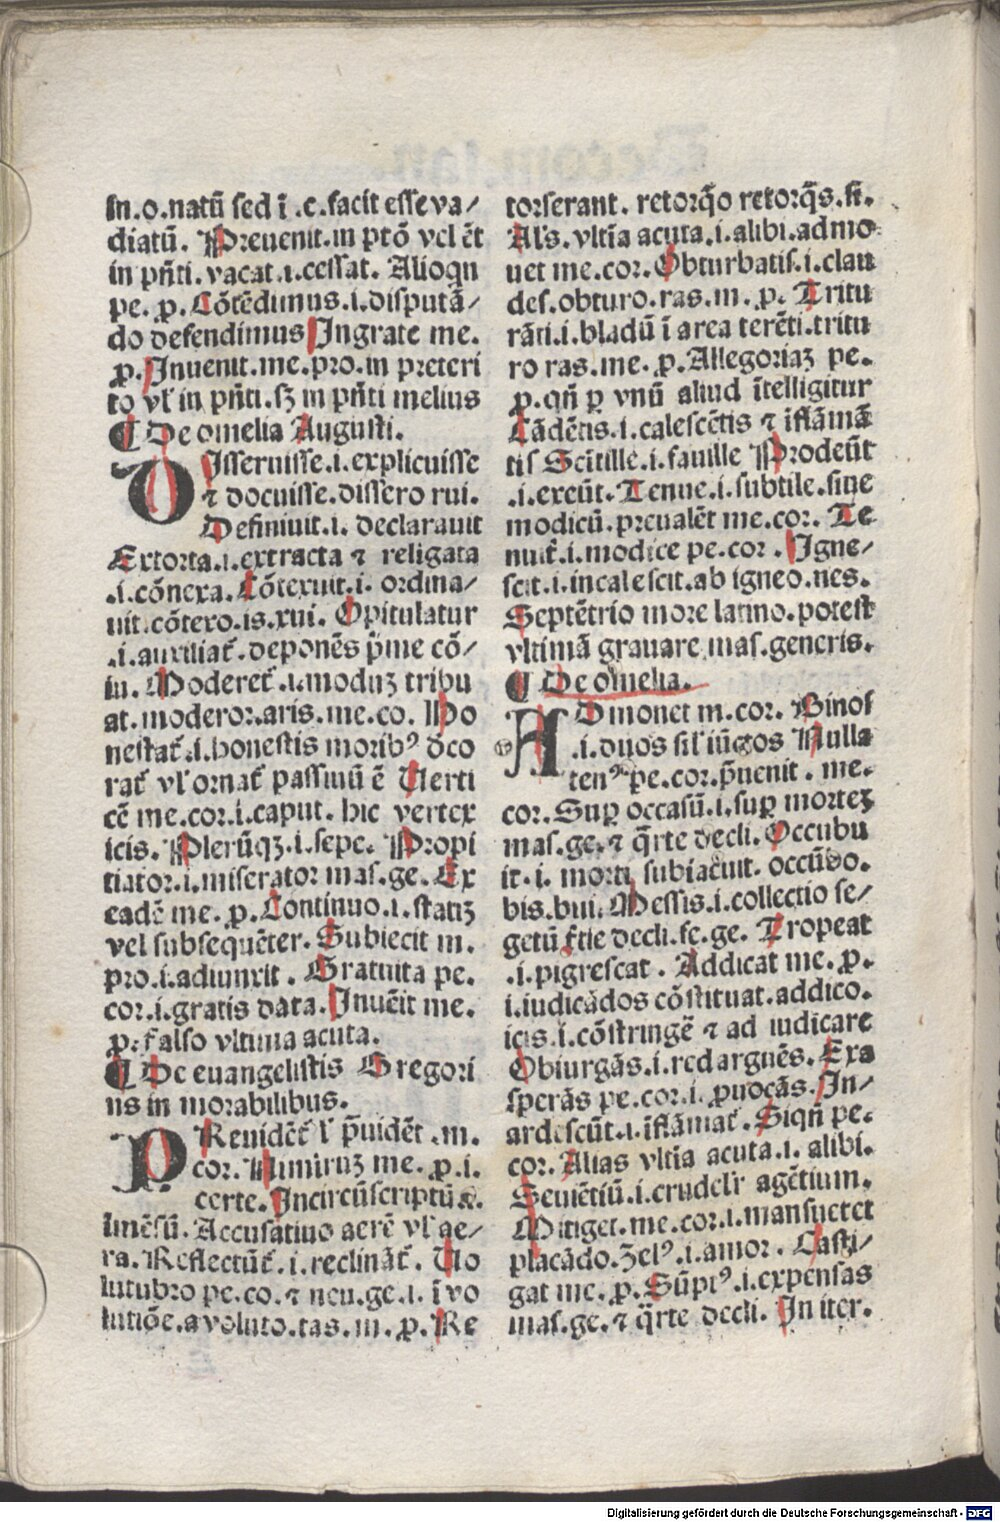 in.o.natū sed ī .e.facit esse va/
diatū. Preuenit.in ptō vel ēt
in pn̄ti.vacat.i.cessat. Alioqn
pe. ꝓ. Cōtēdimus.i.disputā/
do defendimus Ingrate me.
ꝓ. Inuenit.me.pro.in preteri
to vl' in pn̄ti.sꝫ in pn̄ti melius
¶ De omelia Augusti.
DIsseruisse.i.explicuisse
⁊ docuisse.dissero rui.
Definiuit.i. declarauit
Extorta.i.extracta ⁊ religata
.i.cōnexa. Cōtexuit.i. ordina/
uit.cōtexo.is.xui. Opitulatur
.i.auxiliat̄.deponēs p̄me cō/
iu. Moderet̄.i.moduꝫ tribu
at.moderor.aris.me.co. Ho
nestat̄.i.honestis moribꝰ deco
rat̄ vl' ornat̄ passiuū ē Verti
cē me.cor.i.caput. hic vertex
icis. Plerūqꝫ.i.sepe. Propi
tiator.i.miserator mas.ge. Ex
eadē me. ꝓ. Continuo.i.statiꝫ
vel subsequēter. Subiecit m.
pro.i.adiunxit. Gratuita pe.
cor.i.gratis data. Inuēit me.
ꝓ.falso vltima acuta.
¶ De euangelistis Gregori
us in morabilibus.
PReuidēt̄ l' p̄uidēt .m.
cor. Nimiruꝫ me. ꝓ.i.
certe. Incircūscriptū.i.
īmēsū. Accusatiuo aerē vl' ae/
ra. Reflectūt̄.i.reclināt̄. Vo
lutubro pe.co.⁊ neu.ge.i. ī vo
lutiōe.a voluto.tas.m. ꝓ. Re
torserant. retorq̄o retorq̄s.si.
Al's.vltīa acuta.i.alibi.admo
uet me.cor. Obturbatis.i.clau
des.obturo.ras.m. ꝓ. Tritu
rāti.i.bladū ī area terēti.tritu
ro ras.me. ꝓ. Allegoriaꝫ pe.
ꝓ.qn̄ ꝑ vnū aliud ītelligitur
Cādētis.i.calescētis ⁊ īflāmā
tis Scītille.i.fauille Prodeūt
.i.exeūt. Tenue.i.subtile.siue
modicū.preualēt me.cor. Te
nuit̄.i.modice pe.cor. Igne/
scit.i.incalescit.ab igneo.nes.
Septētrio more latino.potest
vltimā grauare mas.generis.
¶ De omelia.
ADmonet m.cor. Binos
.i.duos sil' iūgos Nulla
tenꝰ pe.cor.p̄uenit. me.
cor. Suꝑ occasū.i.suꝑ morteꝫ
mas.ge.⁊ q̄rte decli. Occubu
it.i. morti subiacuit. occūbo.
bis.bui. Messis.i.collectio se/
getū t̄tie decli.fe.ge. Tropeat
.i.pigrescat. Addicat me. ꝓ.
i.iudicādos cōstituat.addico.
icis.i.cōstringē ⁊ ad iudicare
Obiurgās.i.redarguēs. Exa
sperās pe.cor.i. ꝓuocās. In/
ardescūt.i.īflāmat̄. Siqn̄ pe.
cor. Alias vltīa acuta.i. alibi.
Seuiētiū.i.crudelr̄ agētium.
Mitiget.me.cor.i.mansuetet
placādo. Zelꝰ.i.amor. Casti/
gat me. ꝓ. Sūptꝰ.i.expensas
mas.ge.⁊ q̄rte decli. In iter.
Digitalisierung gefördert durch die Deutsche Forschungsgemeinschaft - DFG